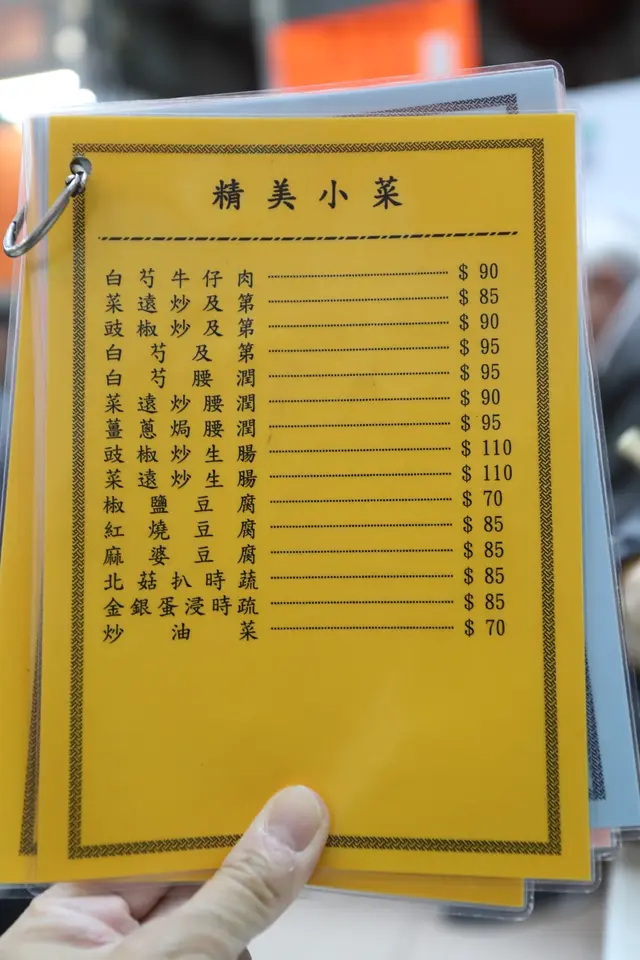 精美小菜
白芍牛仔肉 $ 90
菜遠炒及第 $ 85
豉椒炒及第 $ 90
白芍及第 $ 95
白芍腰潤 $ 95
菜遠炒腰潤 $ 90
薑蔥焗腰潤 $ 95
豉椒炒生腸 $ 110
菜遠炒生腸 $ 110
椒鹽豆腐 $ 70
紅燒豆腐 $ 85
麻婆豆腐 $ 85
北菇扒時蔬 $ 85
金銀蛋浸時疏 $ 85
炒油菜 $ 70